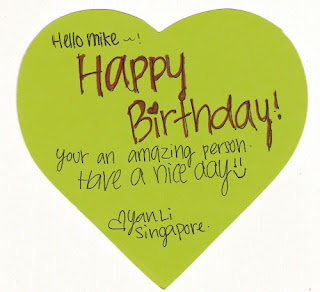 Hello mike ~!
Happy
Birthday!
your an amazing person.
Have a nice day!!
♡YanLi
Singapore.